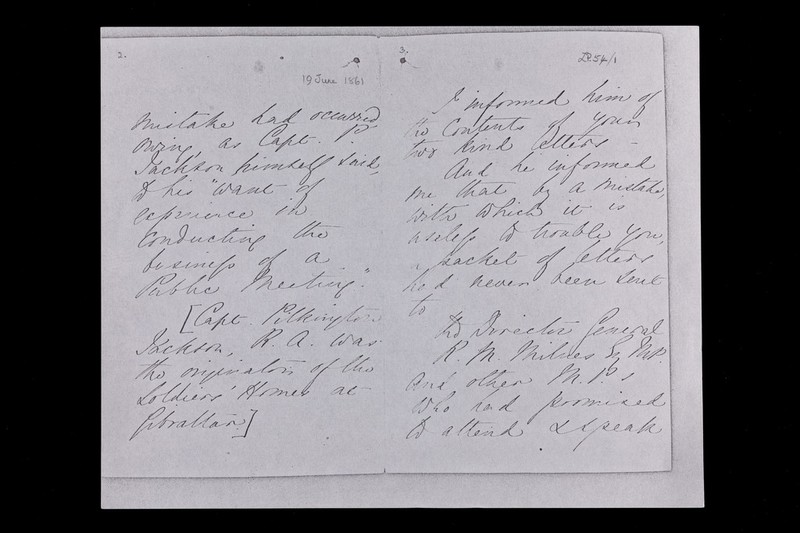 2.
19 June 1861
mistake had occurred
owing, as Capt. P.
Jackson himself said,
to his "want of
experience in
conducting the
business of a
Public Meeting."
[Capt. Pilkington
Jackson, R.A. was
the originator of the
Soldiers' Homes at
Gibraltar]
3.
LP54/1
I informed him of
the contents of your
two kind letters -
And he informed
me that by a mistake,
with which it is
useless to trouble you,
a packet of letters
had never been sent
to
the Director General
R. M. Milnes Esq M.P.
And other M.P.s
who had promised
to attend & speak